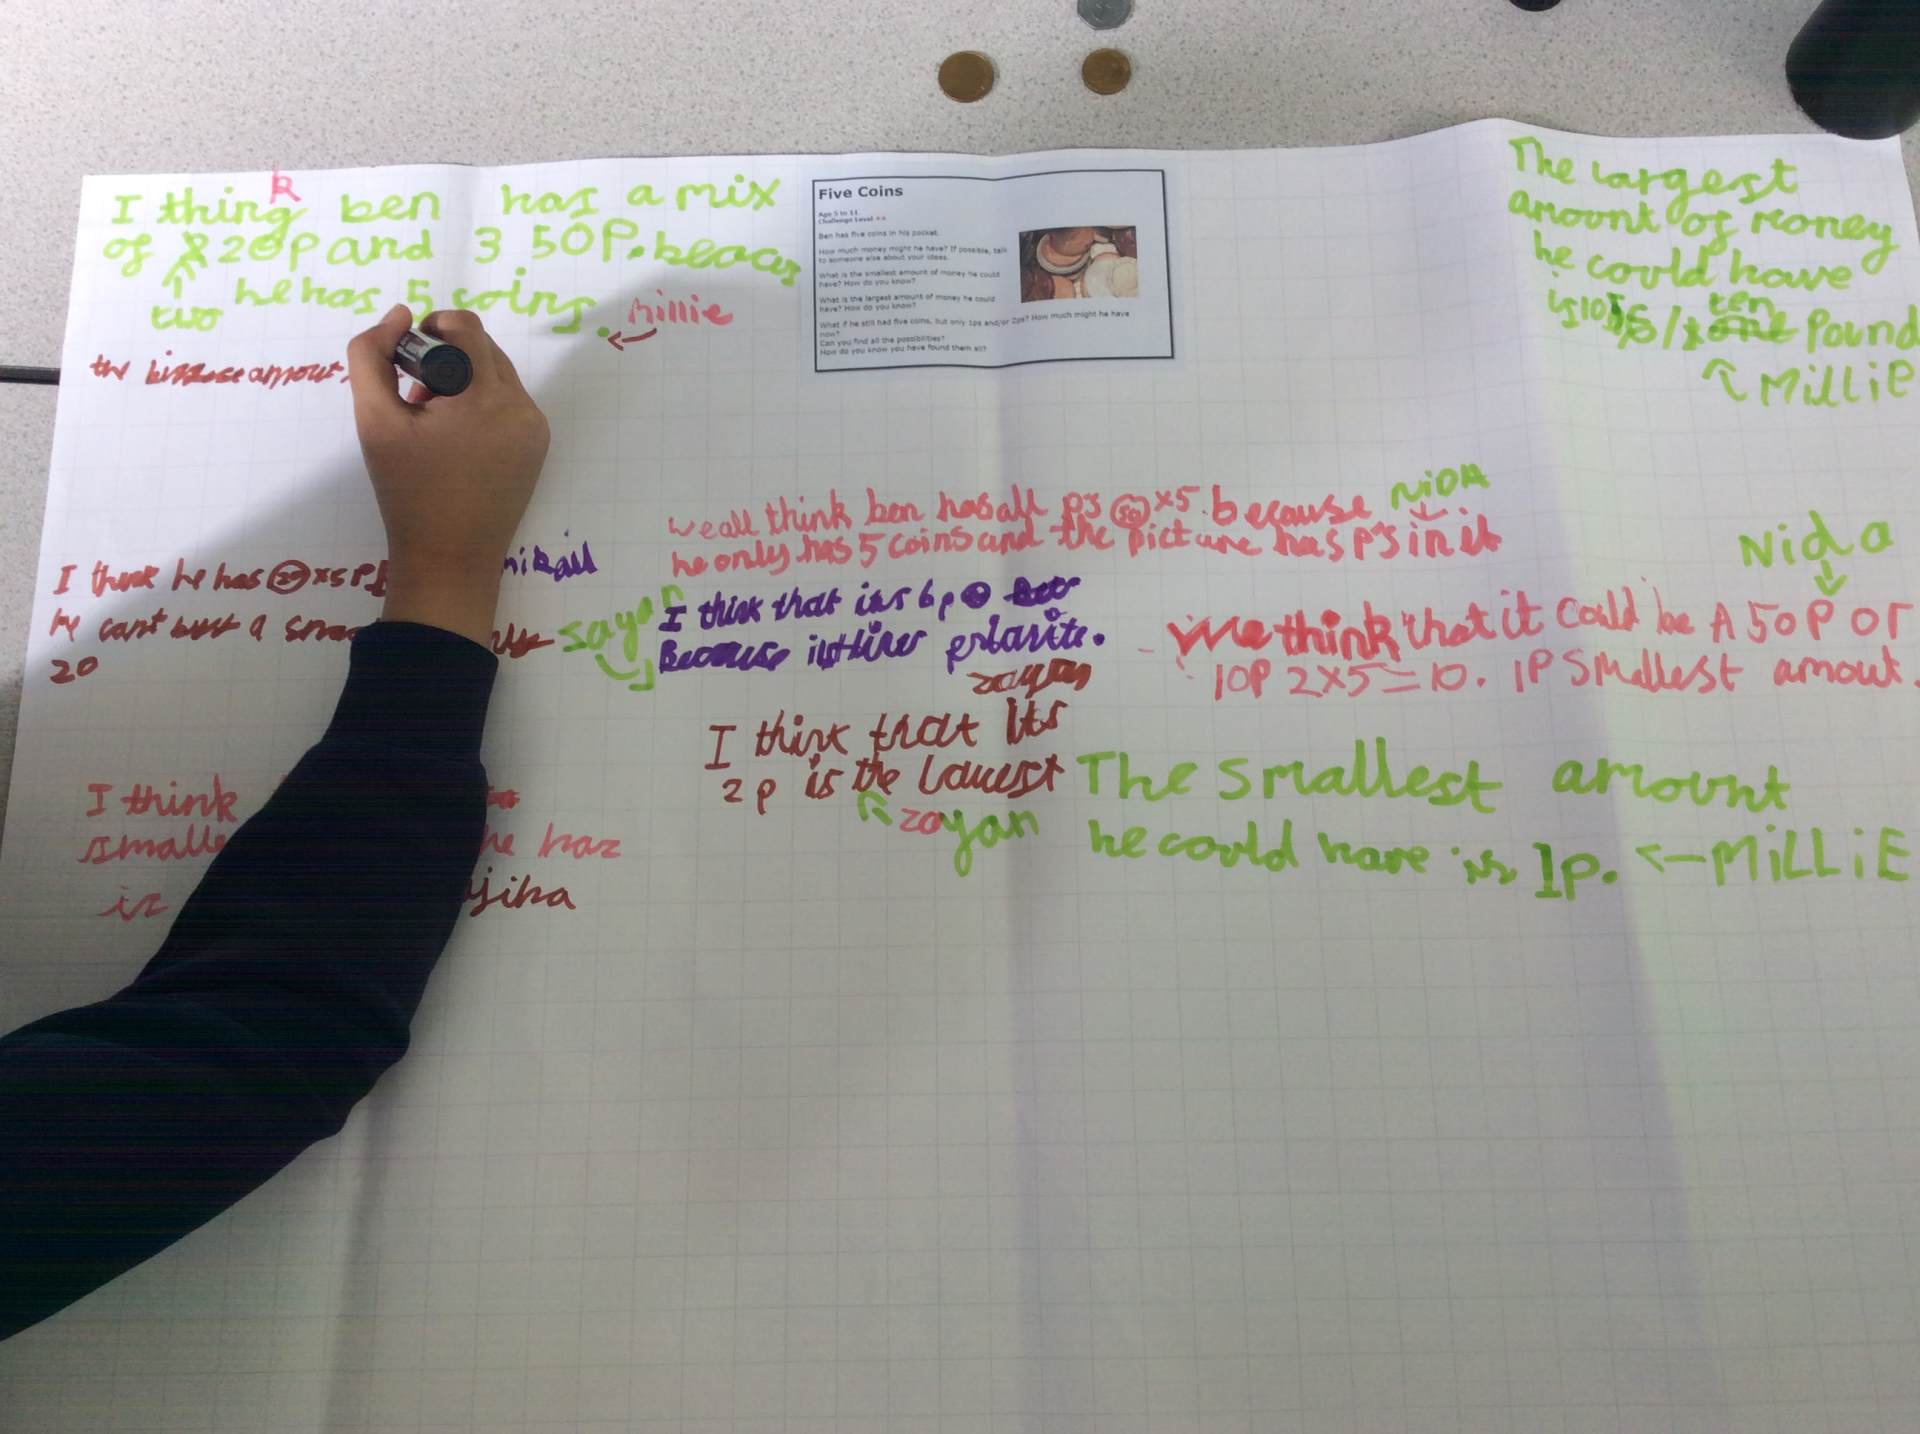 I thing ben has a mix
k
of 2 20p and 3 50P. becaus
two he has 5 coins. millie
the amount
Five Coins
Age 5 to 11
Challenge Level
Ben has five coins in his pocket.
How much money might he have? If possible, talk
to someone else about your ideas.
What is the smallest amount of money he could
have? How do you know?
What is the largest amount of money he could
have? How do you know?
What if he still had five coins, but only 1ps and/or 2ps? How much might he have
now?
Can you find all the possibilities?
How do you know you have found them all?
The largest
amount of money
he could have
is 10 / ten Pound
MilliE
we all think ben has all p's 50 x5. because NiDA
he only has 5 coins and the picture has p's in it
I think he has x5 P mikail
he cant a
20
I think that its 6p
Because
zayan
I think that Its
2p is the lawest
zayan
Nida
We think that it could be A 50P or
10P 2x5=10. 1P Smallest amout.
The smallest amount
he could have is 1p. <- MiLLiE
I think
smalle he haz
iz